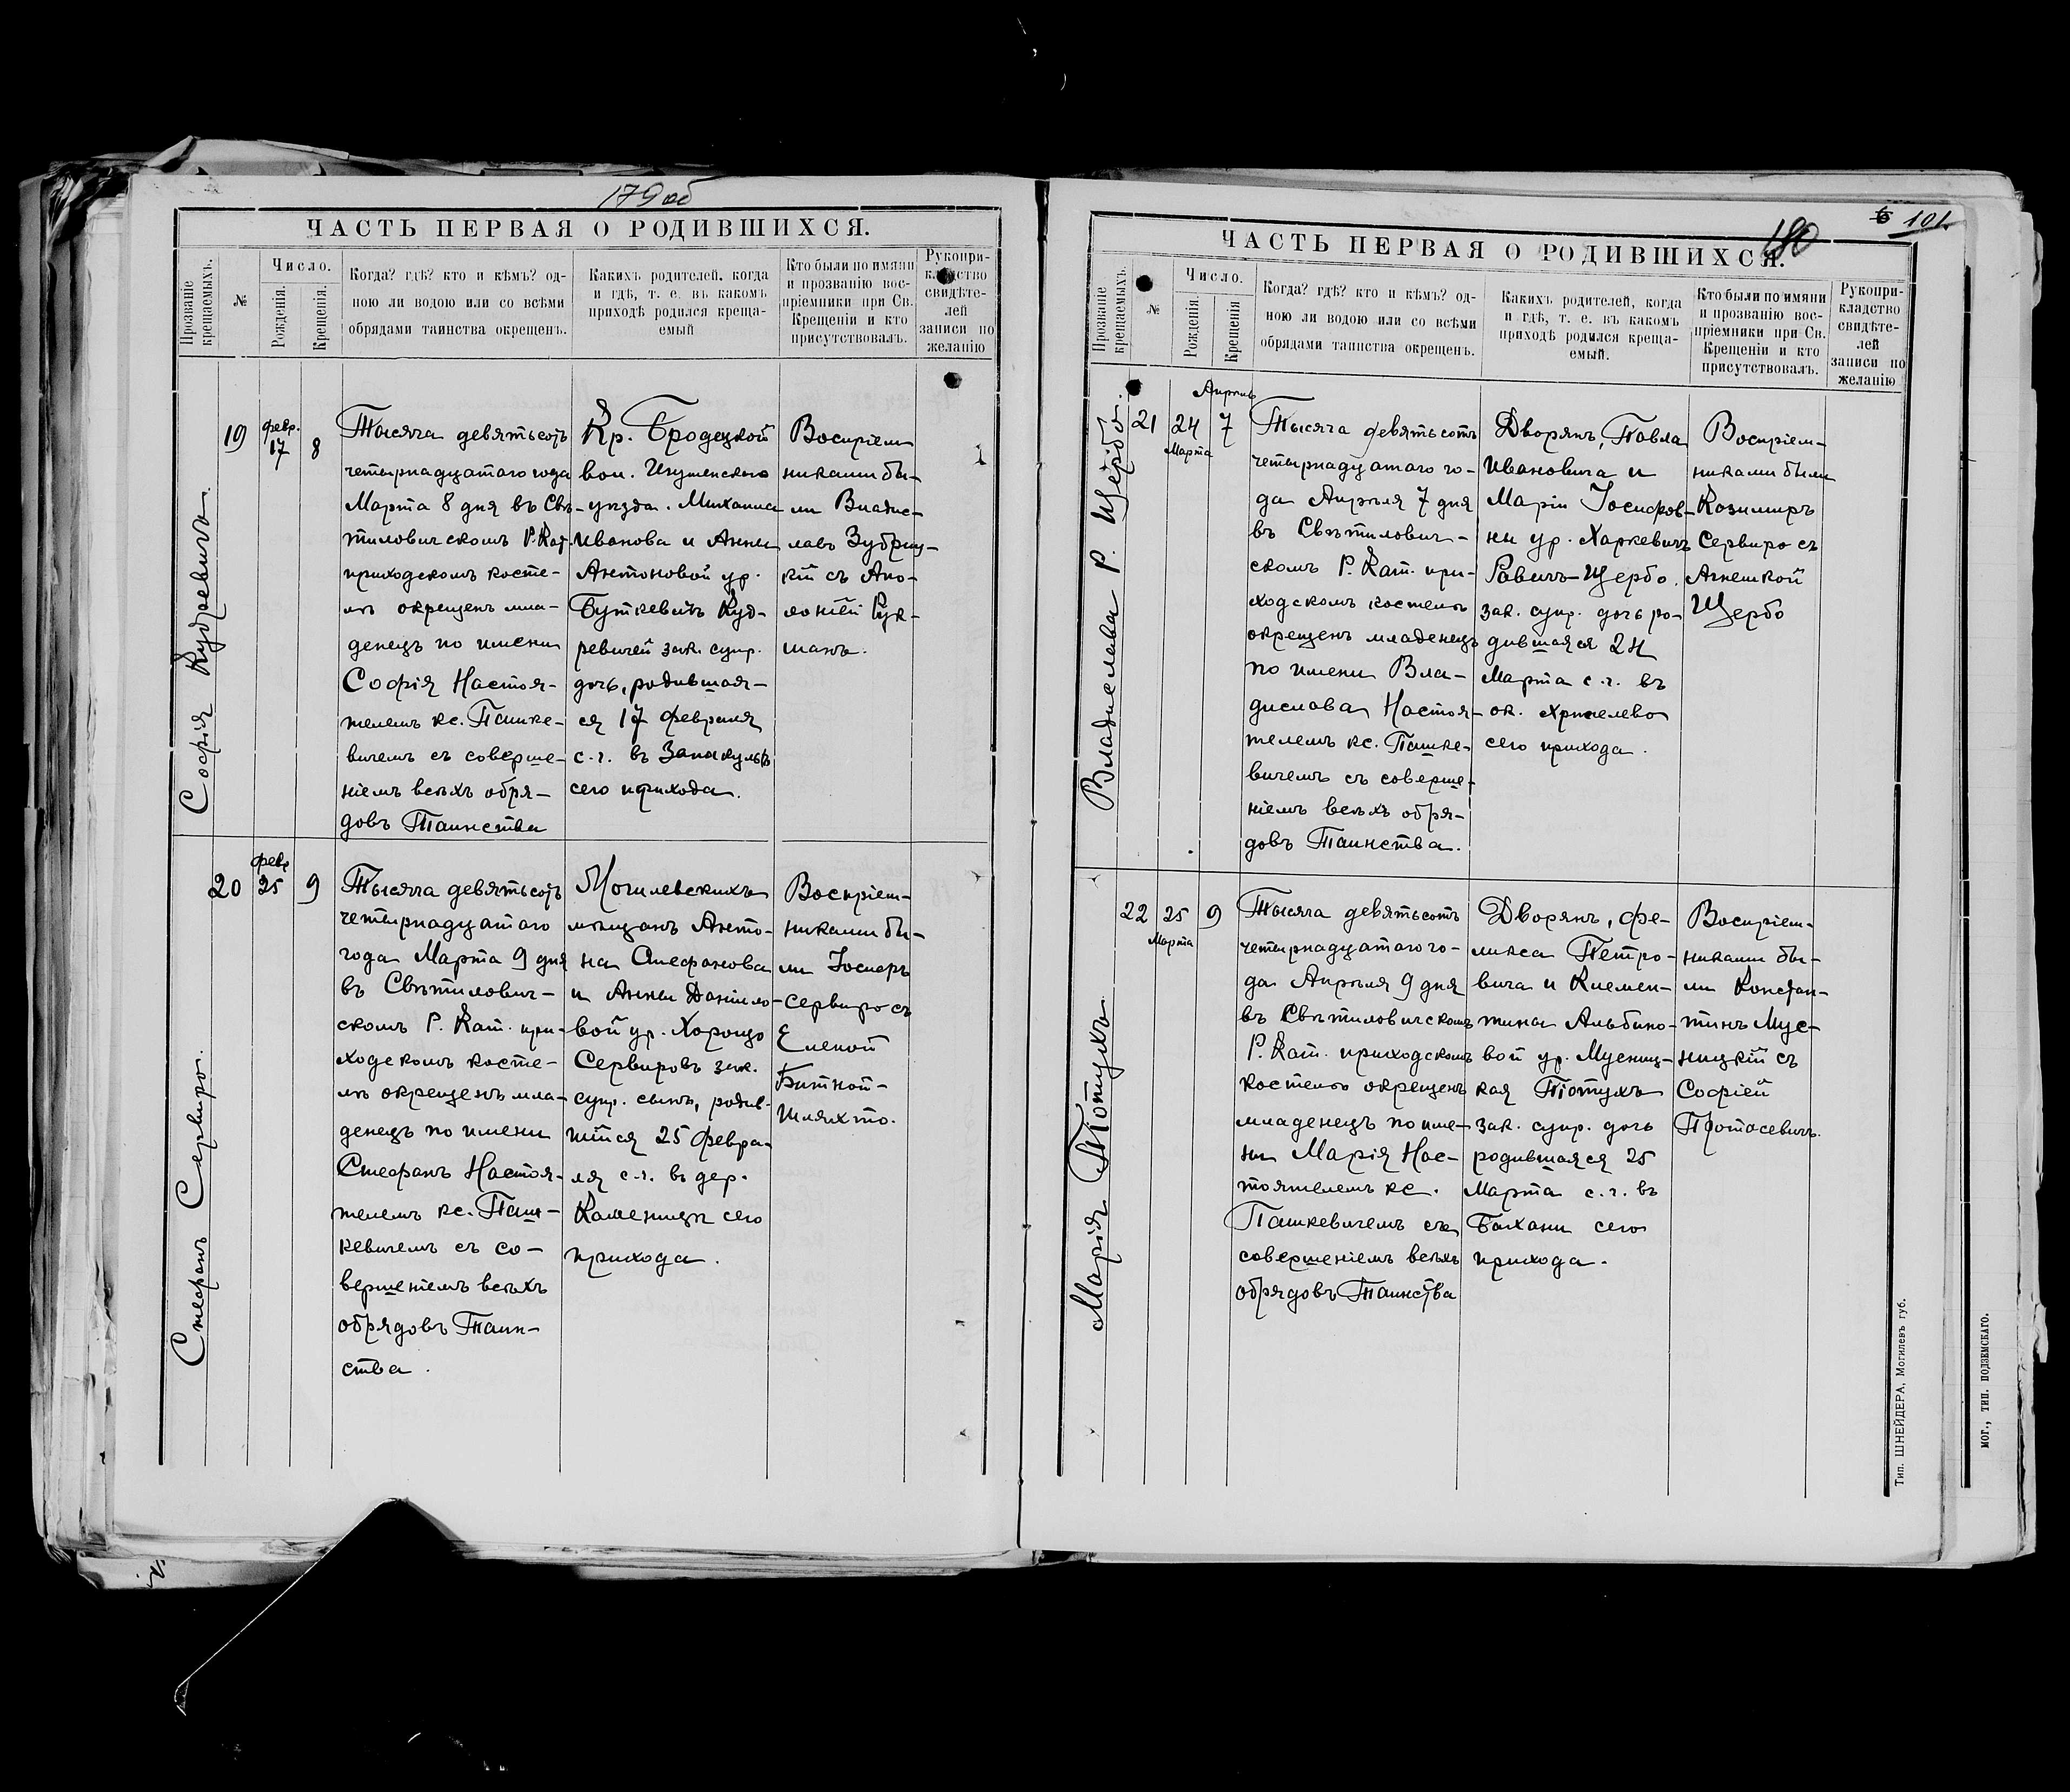 179 об
ЧАСТЬ ПЕРВАЯ О РОДИВШИХСЯ.
Прозваніе крещаемыхъ.
№
Число.
Рожденія.
Крещенія.
Когда? гдѣ? кто и кѣмъ? од-
ною ли водою или со всѣми
обрядами таинства окрещенъ.
Какихъ родителей, когда
и гдѣ, т. е. въ какомъ
приходѣ родился креща-
емый
Кто были по имяни
и прозванію вос-
пріемники при Св.
Крещеніи и кто
присутствовалъ.
Рукопри-
кладство
свидѣте-
лей
записи по
желанію
Софія Кудревичъ.
19
февр.
17
8
Тысяча девятьсотъ
четырнадцатаго года
Марта 8 дня въ Свѣ-
тиловичскомъ Р. Кат.
приходскомъ косте-
лѣ окрещенъ мла-
денецъ по имени
Софія Настоя-
телемъ кс. Пашке-
вичемъ съ соверше-
ніемъ всѣхъ обря-
довъ Таинства
Кр. Бродецкой
вол. Игуменскаго
уѣзда. Михаила
Иванова и Анны
Антоновой ур.
Буткевичъ Куд-
ревичей зак. супр.
дочь, родившая-
ся 17 февраля
с.г. въ
сего прихода.
Воспріем-
никами бы-
ли Владис-
лавъ Зубриц-
кій съ Апо-
лоніей
20
февр
25
9
Стефанъ Сервиро.
Тысяча девятьсотъ
четырнадцатаго
года Марта 9 дня
въ Свѣтилович-
скомъ Р. Кат. при-
ходскомъ косте-
лѣ окрещенъ мла-
денецъ по имени
Стефанъ Настоя-
телемъ кс. Паш-
кевичемъ съ со-
вершеніемъ всѣхъ
обрядовъ Таин-
ства.
Могилевскихъ
мѣщанъ Анто-
на Стефанова
и Анны Данило-
вой ур. Хорощо
Сервировъ зак.
супр. сынъ, родив-
шійся 25 февра-
ля с.г. въ дер.
Каменицѣ сего
прихода.
Воспріем-
никами бы-
ли Іосифъ
Сервиро съ
Еленой
Битной-
Шляхто.
180
101.
ЧАСТЬ ПЕРВАЯ О РОДИВШИХСЯ.
Прозваніе крещаемыхъ.
№
Число.
Рожденія.
Крещенія
Когда? гдѣ? кто и кѣмъ? од-
ною ли водою или со всѣми
обрядами таинства окрещенъ.
Какихъ родителей, когда
и гдѣ, т. е. въ какомъ
приходѣ родился креща-
емый.
Кто были по имяни
и прозванію вос-
пріемники при Св.
Крещеніи и кто
присутствовалъ.
Рукопри-
кладство
свидѣте-
лей
записи по
желанію
Владислава Р. Щербо.
21
24
Марта
Апрѣль
7
Тысяча девятьсотъ
четырнадцатаго го-
да Апрѣля 7 дня
въ Свѣтилович-
скомъ Р. Кат. при-
ходскомъ костелѣ
окрещенъ младенецъ
по имени Вла-
дислава Настоя-
телемъ кс. Пашке-
вичемъ съ соверше-
ніемъ всѣхъ обря-
довъ Таинства.
Дворянъ, Павла
Ивановича и
Маріи Іосифов-
ны ур. Харкевичъ
Равичъ-Щербо.
зак. супр. дочь ро-
дившаяся 24
Марта с.г. въ
ок.
сего прихода.
Воспріем-
никами были
Казимиръ
Сервиро съ
Агнешкой
Щербо
Марія Потухъ
22
25
Марта
9
Тысяча девятьсотъ
четырнадцатаго го-
да Апрѣля 9 дня
въ Свѣтиловичскомъ
Р. Кат. приходскомъ
костелѣ окрещенъ
младенецъ по име-
ни Марія Нас-
тоятелемъ кс.
Пашкевичемъ съ
совершеніемъ всѣхъ
обрядовъ Таинства
Дворянъ, Фе-
ликса Петро-
вича и Клемен-
тины Альбино-
вой ур. Мусниц-
кая Потухъ
зак. супр. дочь
родившаяся 25
Марта с.г. въ
Бахани сего
прихода.
Воспріем-
никами бы-
ли Констан-
тинъ Мус-
ницкій съ
Софіей
Протасевичъ.
Тип. ШНЕЙДЕРА, Могилевъ губ.
МОГ., ТИП. ПОДЗЕМСКАГО.